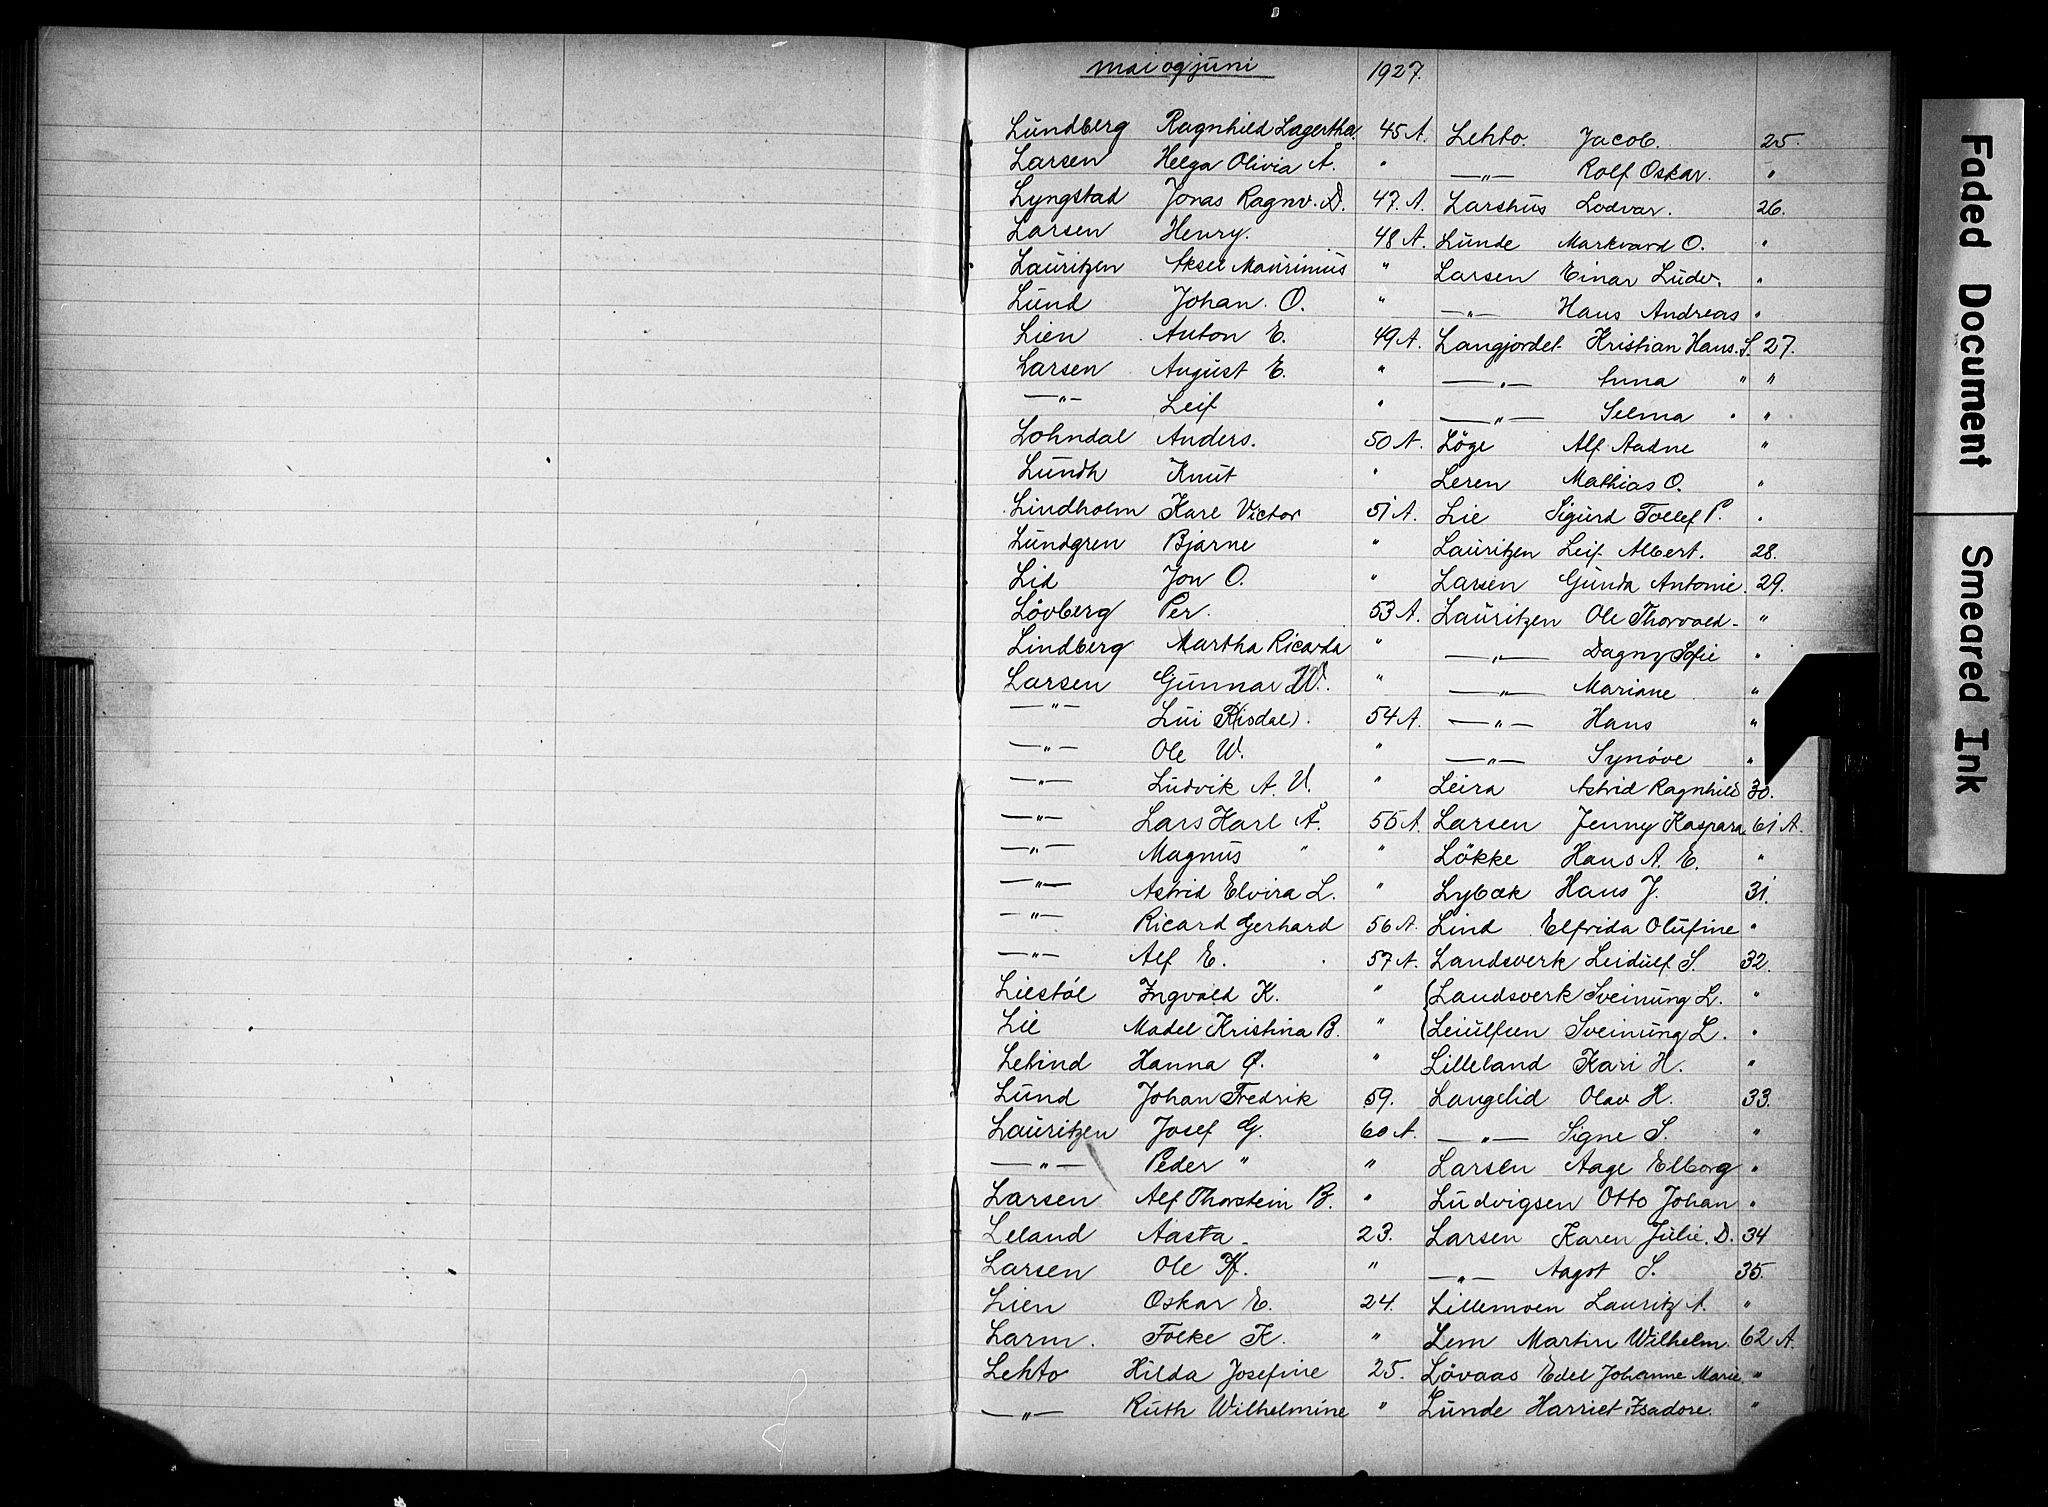 mai og juni 1927.
Lundberg Ragnhild Lagertha 45 A.
Larsen Helga Olivia Å. "
Lyngstad Jonas Ragnv. D. 47. A.
Larsen Henry. 48 A.
Lauritzen Aksel Maurinius "
Lund Johan. O. "
Lien Anton E. 49 A.
Larsen August E. "
—"— Leif "
Lohndal Anders. 50 A.
Lundh Knut "
Lindholm Karl Victor 51 A.
Lundgren Bjarne "
Lid Jon O. "
Lövberg Per. 53 A.
Lindberg Martha Ricarda "
Larsen Gunnar W. "
—"— Lui (Risdal). 54 A.
—"— Ole W. "
—"— Ludvik A. U. "
—"— Lars Karl Å. 55 A.
—"— Magnus " "
—"— Astrid Elvira L. "
—"— Ricard Gerhard 56 A.
—"— Alf E. 57 A.
Liestøl Ingvald K. "
Lie Madel Kristina B. "
Lehind Hanna Ø. "
Lund Johan Fredrik 59.
Lauritzen Josef G. 60 A.
—"— Peder " "
Larsen Alf Thorstein B. "
Leland Aasta 23.
Larsen Ole K. "
Lien Oskar E. 24.
Larm. Folke K. "
Lehto Hilda Josefine 25.
—"— Ruth Wilhelmine "
Lehto. Jacob. 25.
—"— Rolf Oskar. "
Larshus Lodvar. 26.
Lunde Markvard O. "
Larsen Einar Ludv. "
—"— Hans Andreas "
Langjordet Kristian Hans. S. 27.
—"— Anna " "
—"— Selma " "
Löge Alf Aadne "
Leren Mathias O. "
Lie Sigurd Tollef P. "
Lauritzen Leif Albert. 28.
Larsen Gunda Antonie. 29.
Lauritzen Ole Thorvald "
—"— Dagny Sofie "
—"— Mariane "
—"— Hans "
—"— Synöve "
Leira Astrid Ragnhild 30.
Larsen Jenny Kaspara 61 A.
Lökke Hans A. E. "
Lybæk Hans J. 31.
Lind Elfrida Olufine "
Landsverk Leidulf S. 32.
{Landsverk Sveinung L. "
{Leiulfsen Sveinung L. "
Lilleland Kari H. "
Langelid Olav H. 33.
—"— Signe S. "
Larsen Aage Elborg "
Ludvigsen Otto Johan "
Larsen Karen Julie. D. 34
—"— Aagot S. 35.
Lillemoen Lauritz A. "
Lem Martin Wilhelm. 62 A.
Lövaas Edel Johanne Marie. "
Lunde Harriet Isadore. "
Faded Document
Smeared Ink